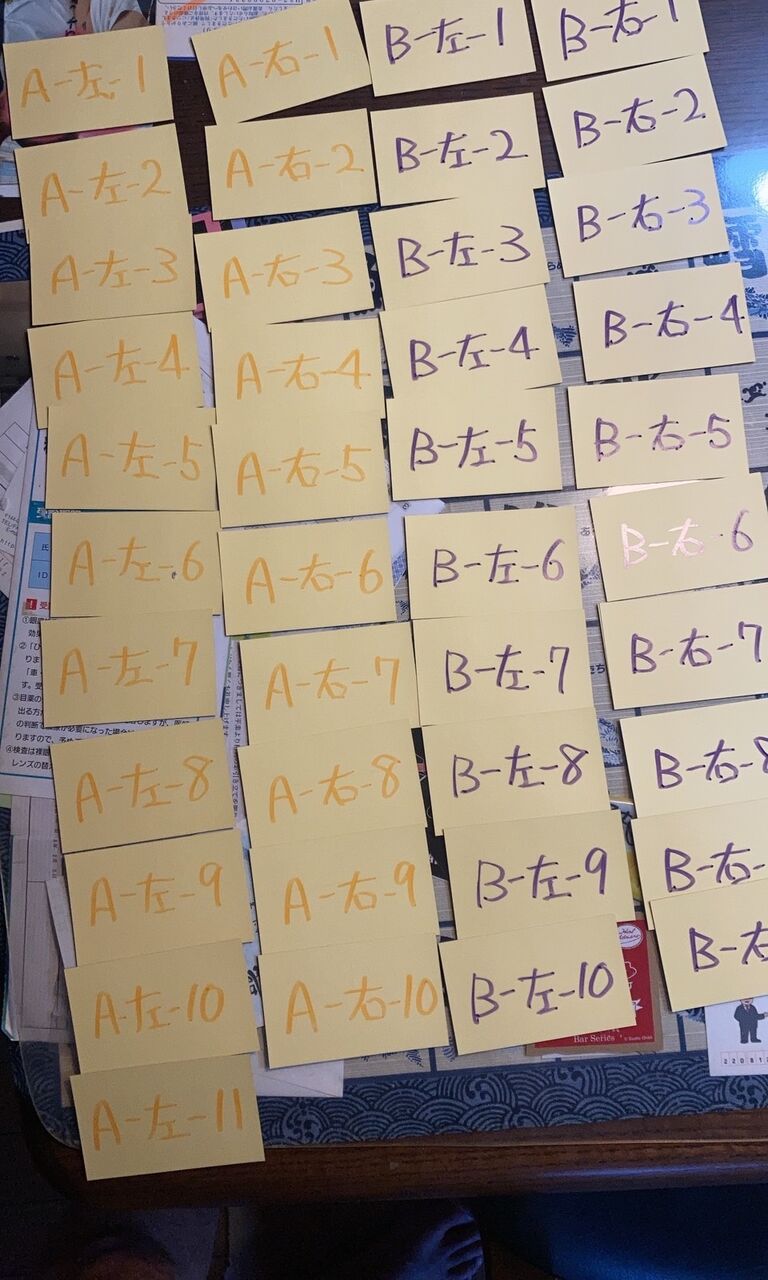 A-左-1
A-右-1
B-左-1
B-右-1
A-左-2
A-右-2
B-左-2
B-右-2
A-左-3
A-右-3
B-左-3
B-右-3
A-左-4
A-右-4
B-左-4
B-右-4
A-左-5
A-右-5
B-左-5
B-右-5
A-左-6
A-右-6
B-左-6
B-右-6
A-左-7
A-右-7
B-左-7
B-右-7
A-左-8
A-右-8
B-左-8
B-右-8
A-左-9
A-右-9
B-左-9
B-右-
A-左-10
A-右-10
B-左-10
B-右
A-左-11
Bar Series